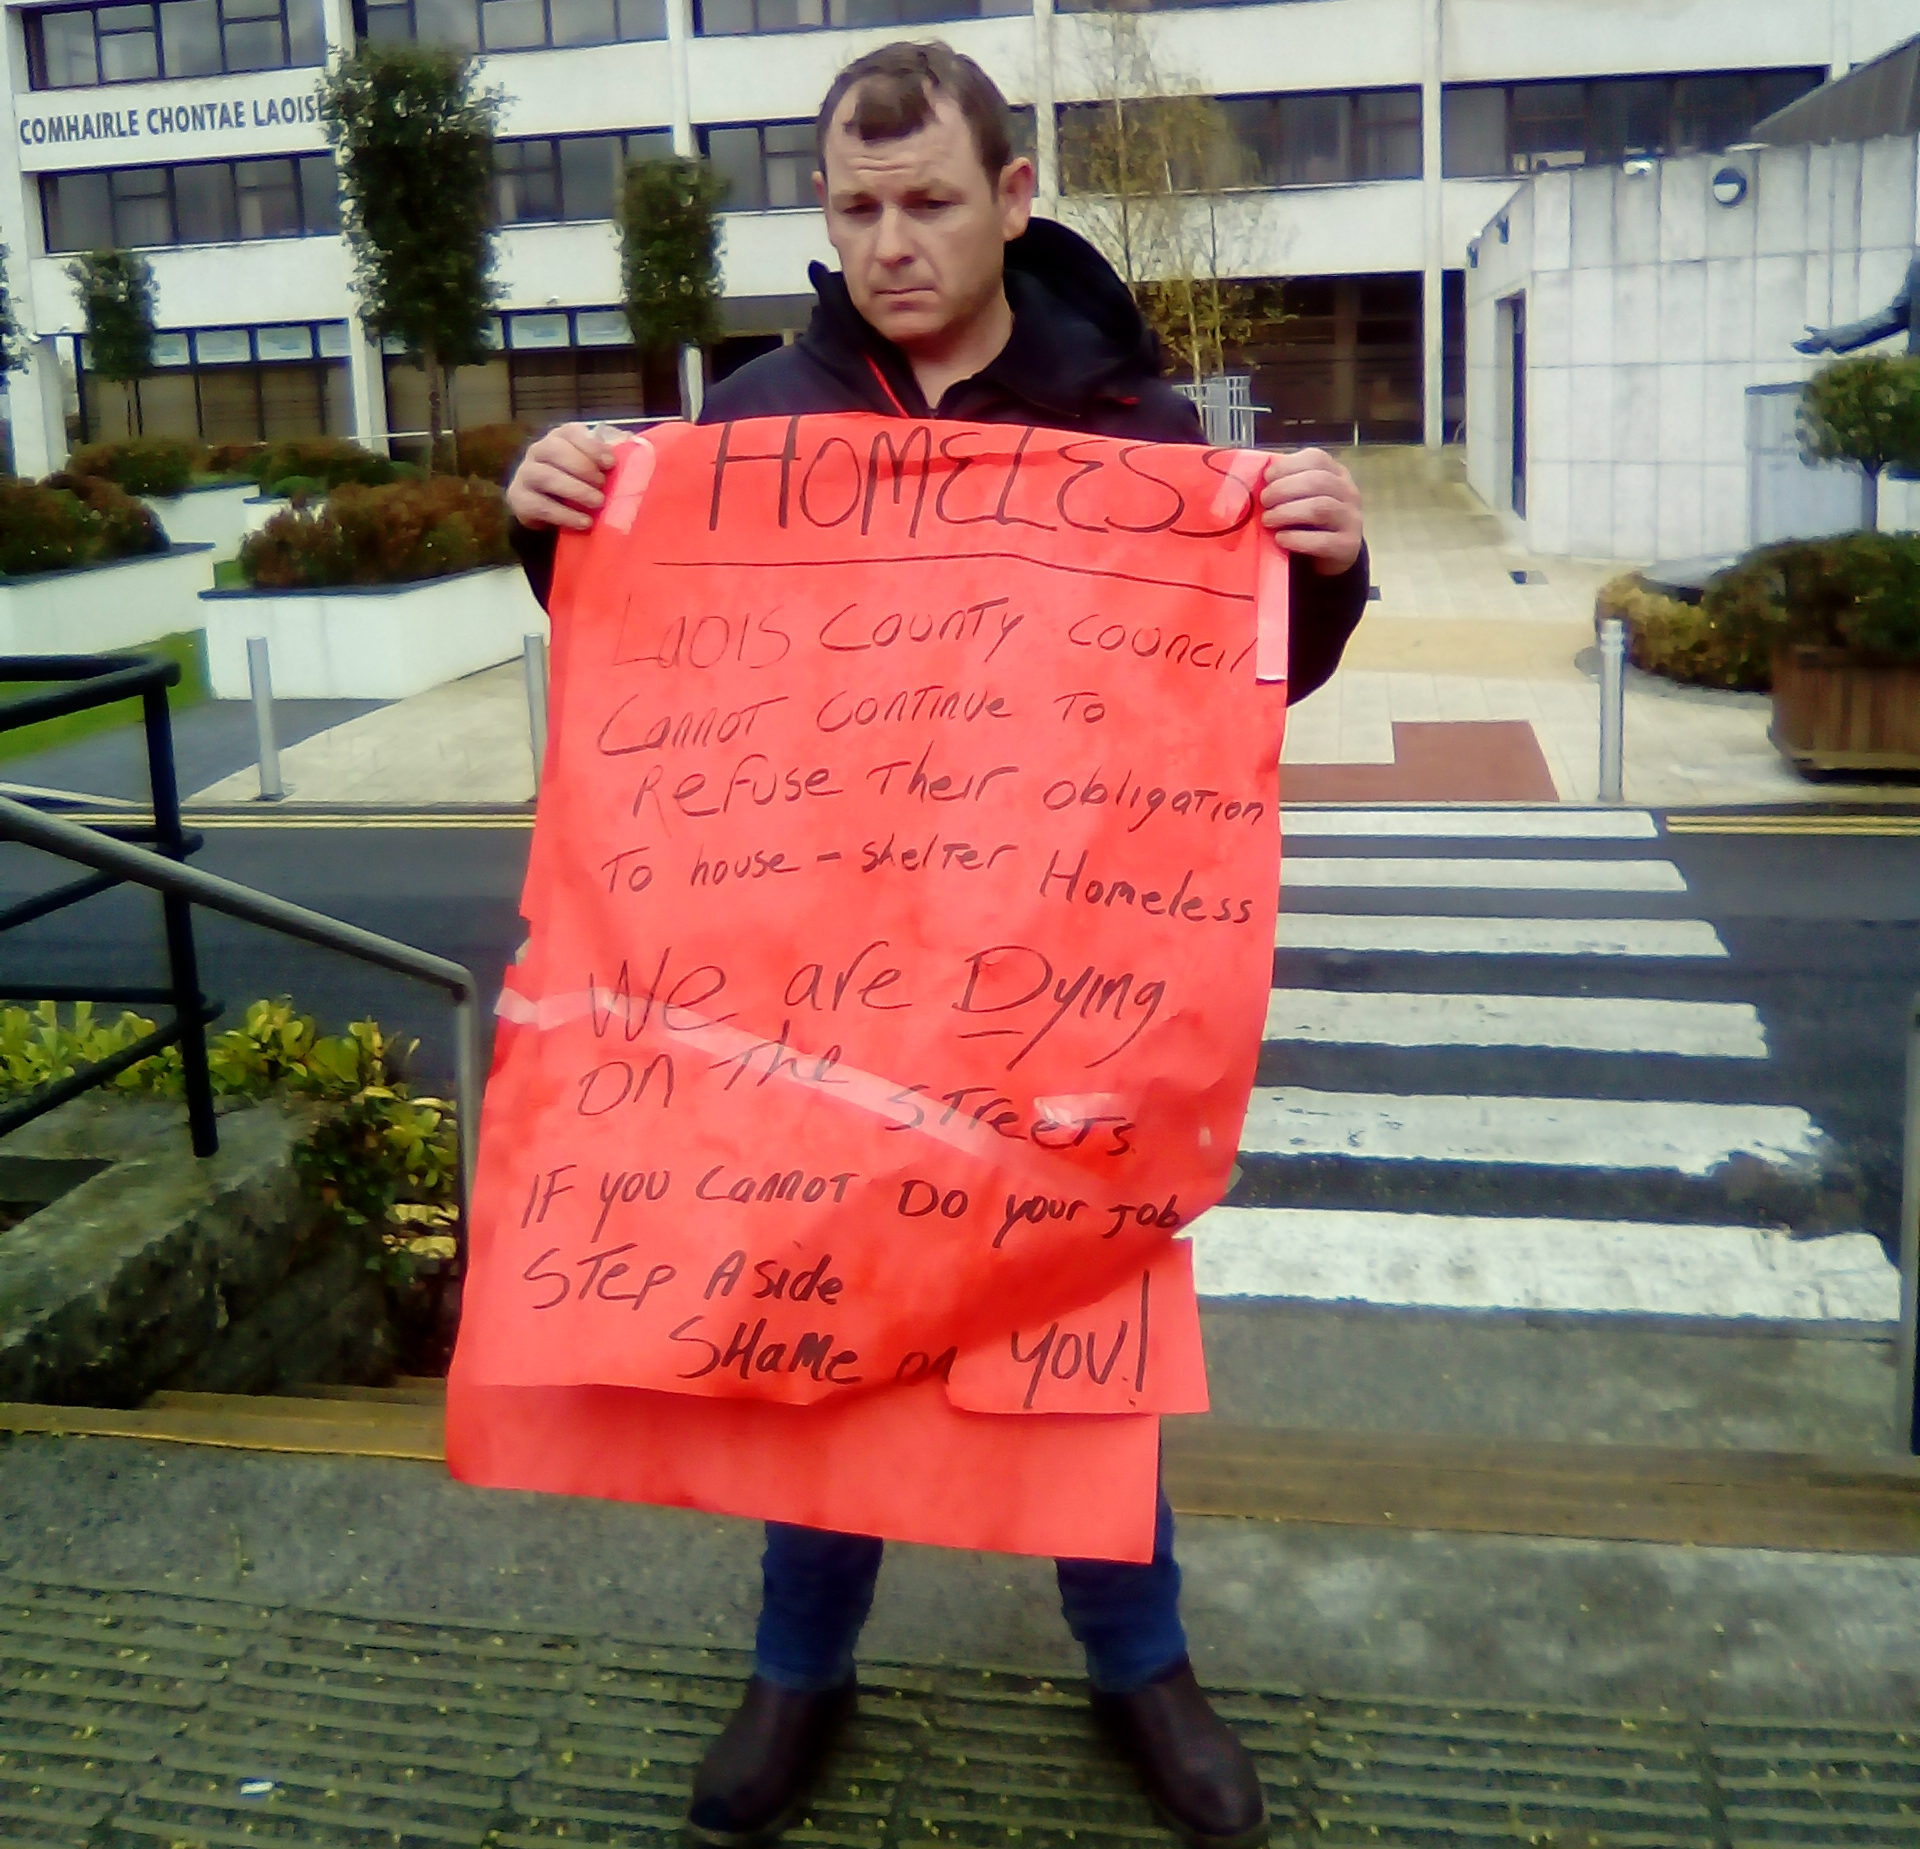 COMHAIRLE CHONTAE LAOISE
HOMELESS
LaOIS COUNTY COUNCIl
CANNOT CONTINUE TO
REFUSE THEIR obligATION
TO house - shelTer Homeless
We are Dying
ON The STreeTs
IF you CANNOT DO your Job
STep ASide
SHaMe on YOU!